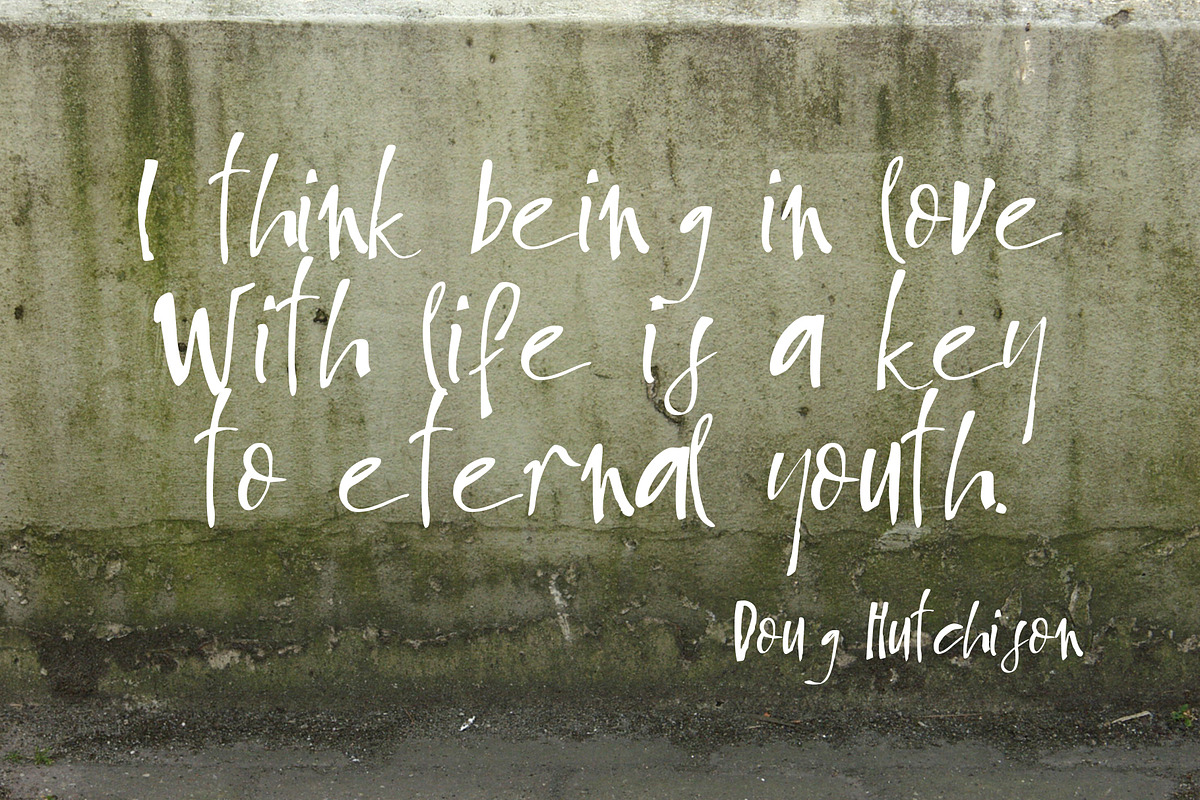 I think being in love
With life is a key
to eternal youth.
Doug Hutchison